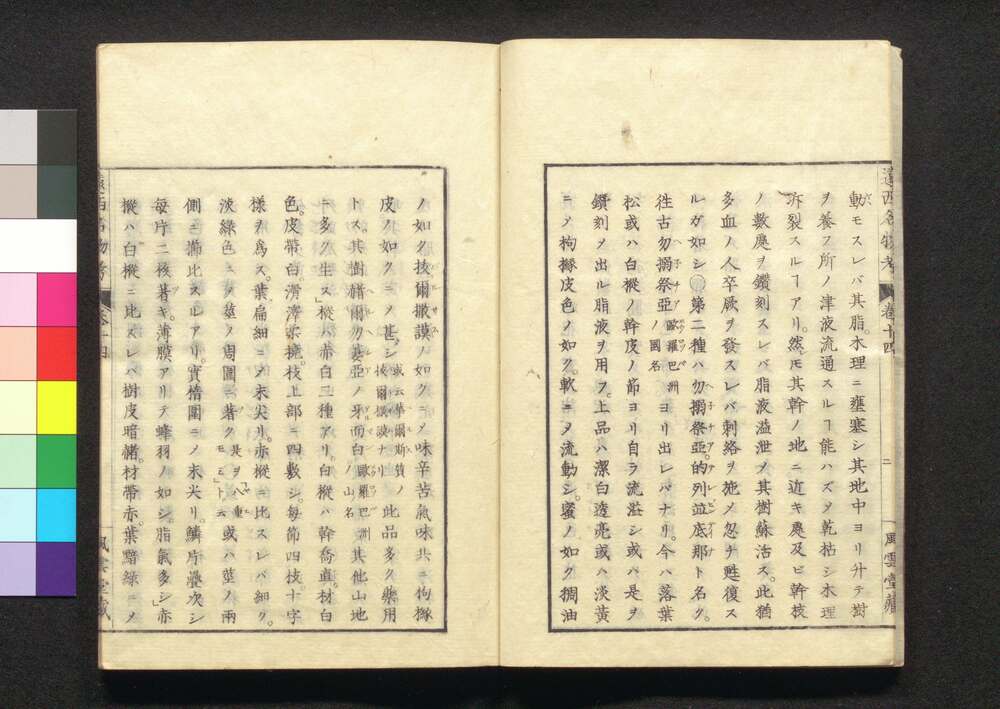 遠西名物考 卷十四 二 風雲堂藏
動モスレバ其脂木理ニ壅塞シ其地中ヨリ升テ樹
ヲ養フ所ノ津液流通スルヿ能ハズメ乾枯シ木理
拆裂スルヿアリ。然𪜈其幹ノ地ニ近キ處及ビ幹枝
ノ數處ヲ鑽刻スレバ脂液溢泄メ其樹蘇活ス。此猶
多血ノ人卒厥ヲ發スレバ刺絡ヲ施メ忽チ甦復ス
ルガ如シ 第二種ハ勿搦祭亞。的列並底那ト名ク。
徃古勿搦祭亞 歐羅巴洲ノ國名 ヨリ出レバナリ。今ハ落葉
松或ハ白樅ノ幹皮ノ節ヨリ自ラ流溢シ或ハ是ヲ
鑽刻メ出ル脂液ヲ用フ。上品ハ潔白透亮或ハ淡黃
ニメ拘櫞皮色ノ如ク。軟ニメ流動シ。蜜ノ如ク搊油
ノ如ク抜爾撒謨ノ如クニメ味辛苦氣味共ニ拘櫞
皮ノ如クニメ甚シ 或云華爾斯質ノ抜爾撒謨ナリ 此品多ク藥用
トス。其樹 勿 亞ノ牙而白 歐羅巴洲ノ山名 其他山地
ニ多ク生ス」樅バ赤白二種アリ。白樅ハ幹喬直。材白
色。皮帶白滑澤 。枝上部ニ四敷シ。每節四枝十字
樣ヲ爲ス。葉扁細ニメ末尖リ。赤樅ニ比スレバ細ク。
淡綠色ニメ莖ノ周圍ニ著ク 是ヲ八重モミト云 或ハ莖ノ兩
側ニ櫛比スルアリ。實楕圓ニメ末尖リ。鱗片疊次シ
每片二核著キ。薄膜アリテ蜂羽ノ如シ。脂氣多シ」赤
樅ハ白樅ニ比スレバ樹皮暗赭。材帶赤。葉黯綠ニメ
遠西名物考 卷十四 風雲堂藏